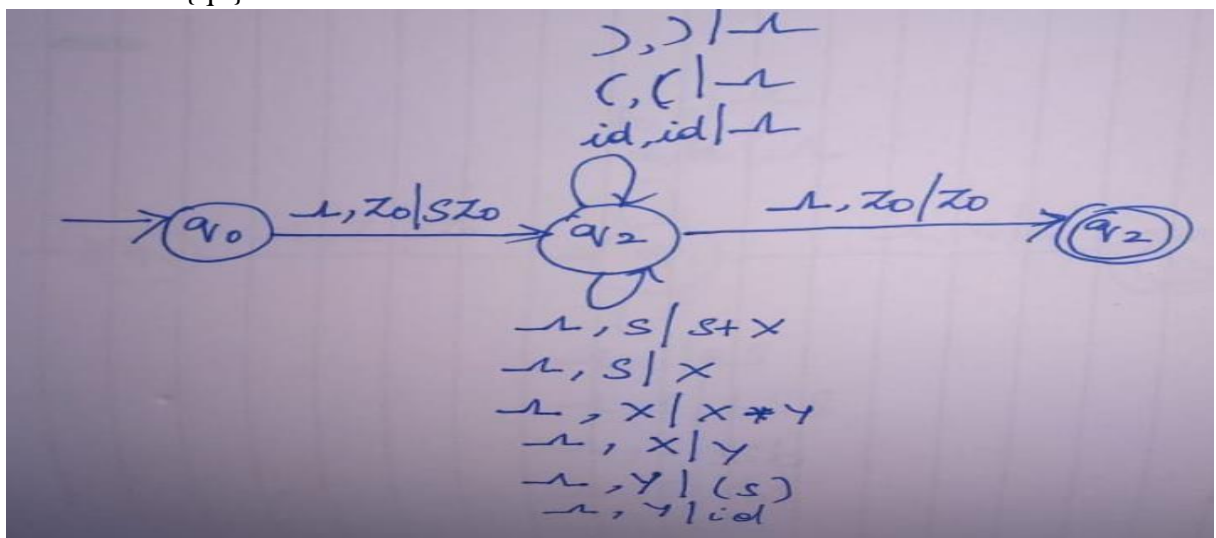 ), ) | Λ
(, ( | Λ
id, id | Λ
q0
Λ, Z0 | SZ0
q2
Λ, Z0 / Z0
q2
Λ, S / S+X
Λ, S | X
Λ, X / X * Y
Λ, X | Y
Λ, Y | (S)
Λ, Y | id